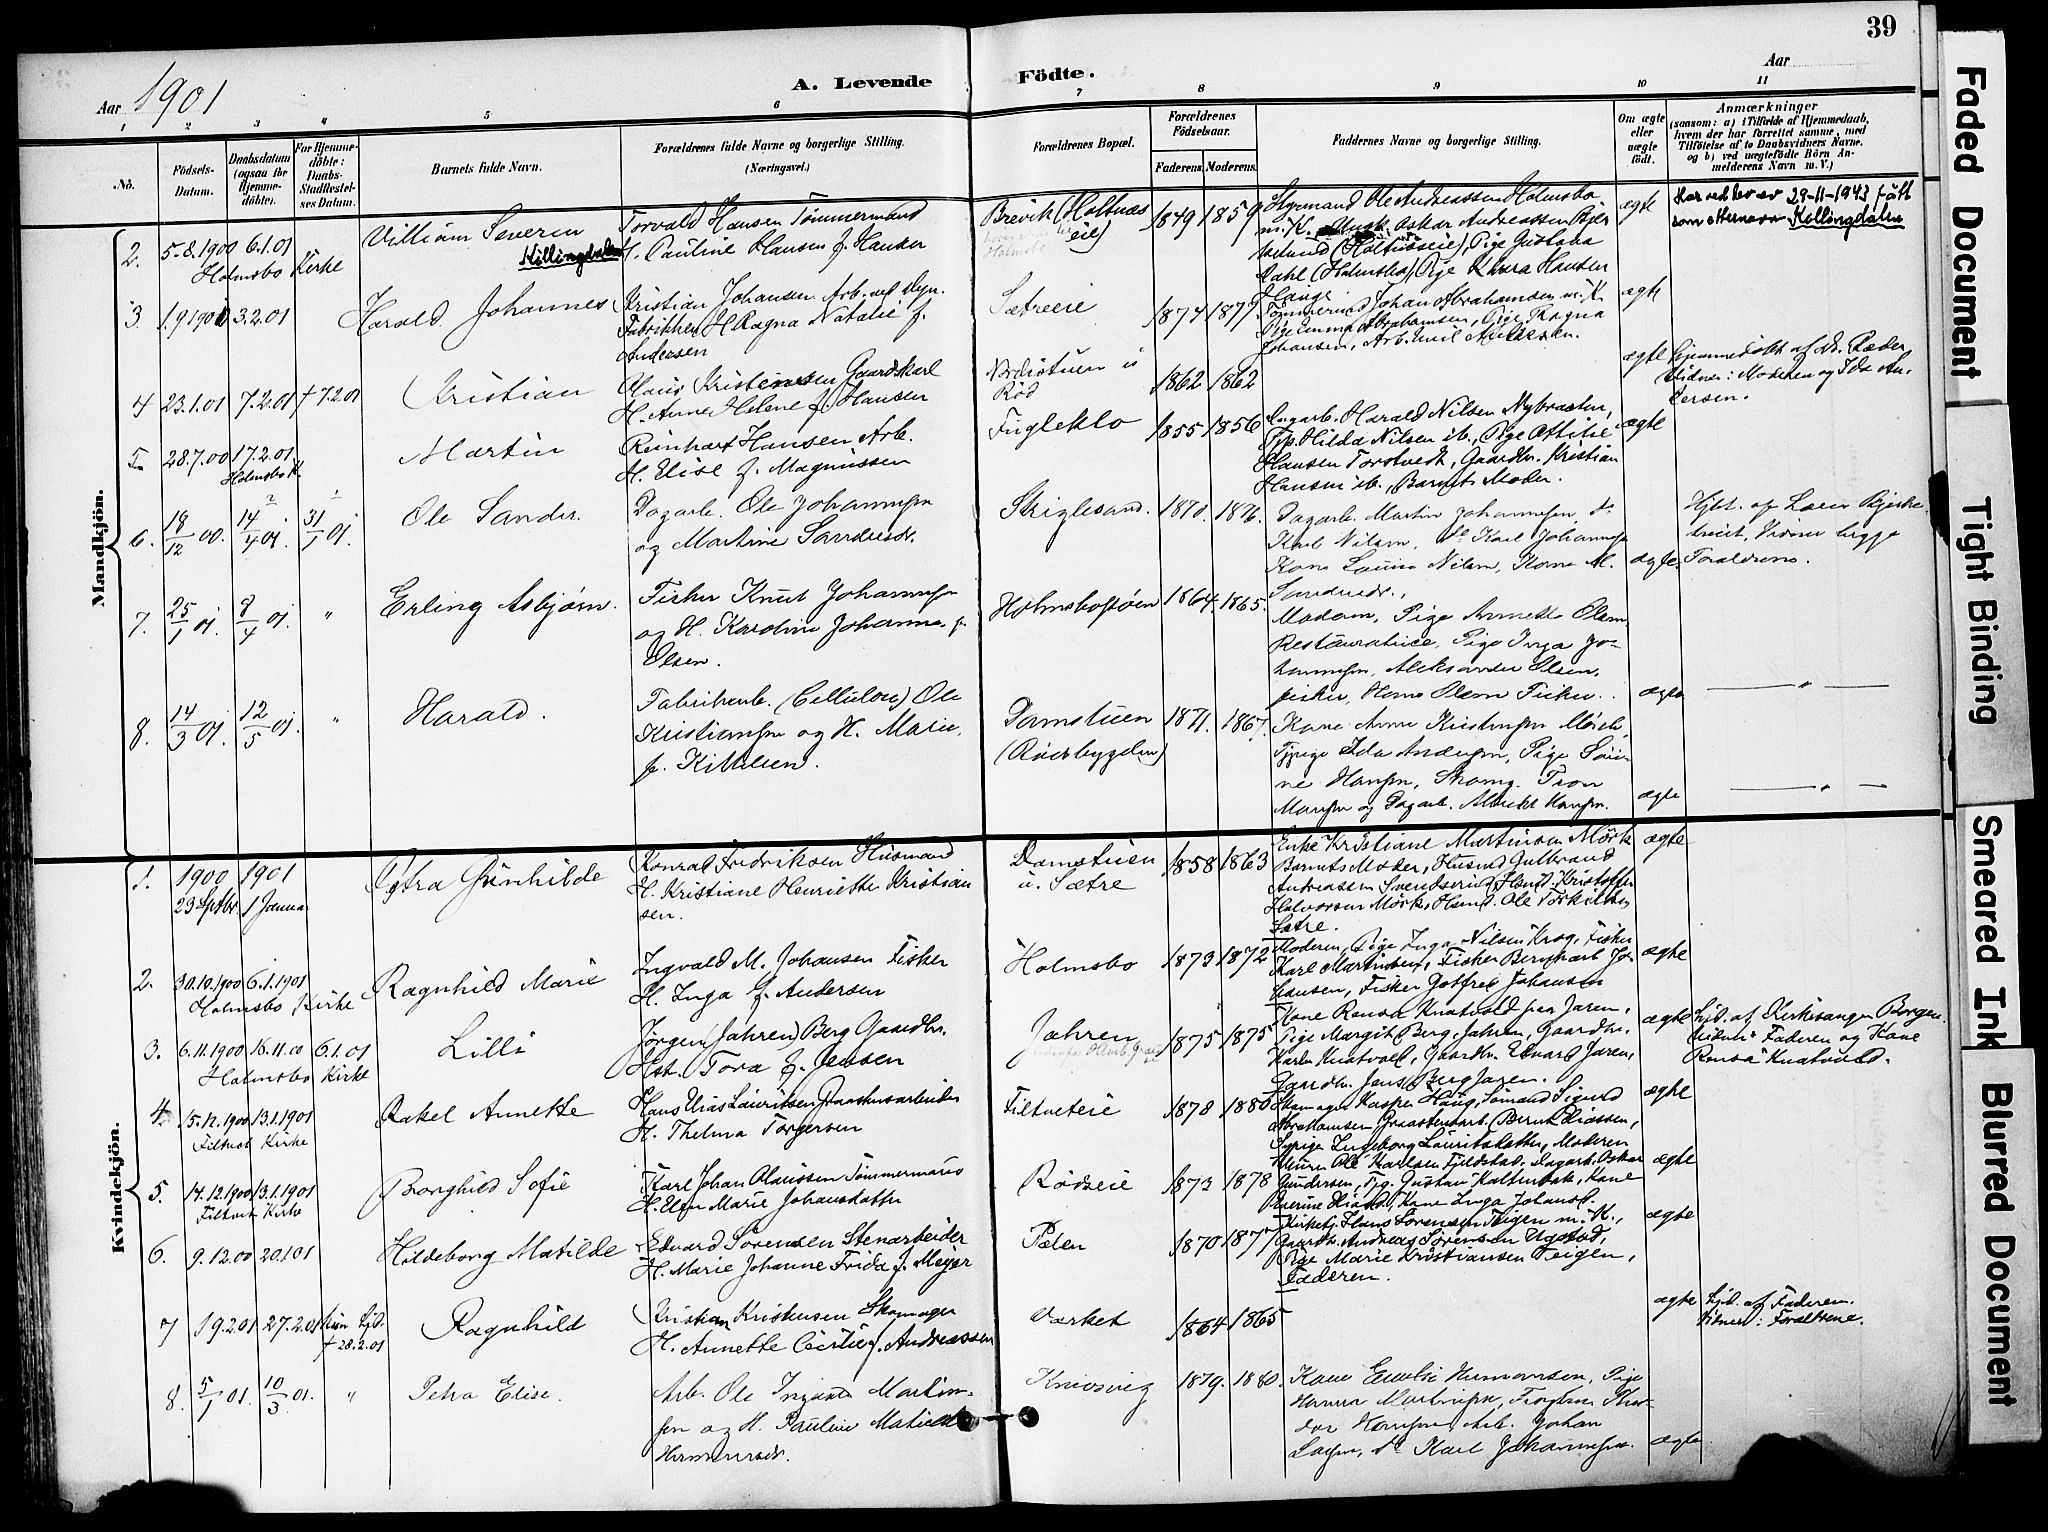 39
Aar 1901
A. Levende Födte.
Aar
1 2 3 4 5 6 7 8 9 10 11
No.
Födsels-Datum.
Daabsdatum (ogsaa for Hjemmedöbte).
For Hjemmedöbte: Daabs-Stadfæstelses Datum.
Barnets fulde Navn.
Forældrenes fulde Navne og borgerlige Stilling.
(Næringsvei.)
Forældrenes Bopæl.
Forældrenes Fødselsaar.
Faderens. Moderens.
Faddernes Navne og borgerlige Stilling.
Om ægte eller uægte födt.
Anmærkninger
(saasom: a) i Tilfælde af Hjemmedaab,
hvem der har forrettet samme, med
Tilföielse af to Daabsvidners Navne,
og b) ved uægtefödte Börn An-
melderens Navn m. V.)
Mandkjön.
2. 5-8.1900 6.1.01
Holmsbo Kirke
Villiam Severin
Killingdalen
Torvald Hansen Tömmermand
H. Pauline Hansen f. Hansen
Brevik (Holtnæs
eie)
1849 1859
Styrmand Ole Andreassen Holmsbo
m. K. Oskar Andreassen
(Holtnæseie), Pige Gustava
Dahl (Holmsbo) Pige Klara Hansen
Hauge.
ægte
Har ved bev av 29-11-1943 fått
som etternavn Killingdalen
3. 1.9.1900 3.2.01
Harald Johannes
Kristian Johansen Arb. ved Dyn.
Fabrikken H. Ragna Natalie f.
Andersen
Sætreeie
1874 1877
Tömmermd Johan Abrahamsen m. K.
Pige Emma Abrahamsen, Pige Ragna
Johansen, Arb. Emil Andersen.
ægte
4 23.1.01 7.2.01 † 7.2.01
Kristian
Olaus Kristensen Gaardskarl
H. Anne Helene f. Hansen
Nordistuen u
Röd
1862 1862
ægte
Hjemmedöbt af Dr. Ræder
Vidner: Moderen og Ida An-
dersen.
5 28.7.00 17.2.01
Holmsbo K.
Martin
Reinhart Hansen Arb.
H. Elise f. Magnussen
Fugleklo
1855 1856
Dagarb. Harald Nilsen Nybraaten,
Tjp. Hilda Nilsen ib., Pige Ottilie
Hansen Torstvedt, Gaardbr. Kristian
Hansen ib., Barnets Moder.
ægte
6. 18/12 00. 14/4 01. 31/1 01.
Ole Sander.
Dagarb. Ole Johannesen
og Martine Sandersdr.
Striglesand.
1870. 1876.
Dagarb. Martin Johannesen, do
Karl Nilsen, do Karl Johannesen
Kone Lauise Nilsen, Kone M.
Sandersdr.,
ægte.
Hjdt. af Lærer Bjerke-
breit, Vidner begge
Forældrene.
7. 25/1 01. 8/4 01. "
Erling Asbjørn.
Fisker Knut Johannesen
og H. Karoline Johanne f.
Olsen.
Holmsbostøen
1864. 1865.
Madam, Pige Annette Olsen
Restauratrice, Pige Inga Jo-
hannesen, Aleksander Olsen,
fisker, Hans Olsen Fisker.
ægte
— " —
8. 14/3 01. 12/5 01. "
Harald.
Fabrikarb. (Cellulose) Ole
Kristiansen og H. Marie
f. Kittelsen.
Damstuen
(Rödsbygden)
1871. 1867.
Kone Anne Kristensen Mörch,
Tjpige Ida Andersen, Pige
Hansen, Skomg. Tron
Hansen og Dagarb. Hansen.
ægte
— " —
Kvindekjön.
1. 1900 1901
23 Septbr. 1 Januar
Dytra Gunhilde
Konrad Fredriksen Husmand
H. Kristiane Henriette Kristian
sen.
Damstuen
u. Sætre
1858 1863
Enke Kristiane Martinsen Mörk
Barnets Moder, Husmd Gulbrand
Andreassen Svendsrud, Husmd. Kristoffer
Halvorsen Mörk, Husmd. Ole Torkilsen
Sætre.
ægte
2. 30.10.1900 6.1.1901
Holmsbo Kirke
Ragnhild Marie
Ingvald M. Johansen Fisker
H. Inga f. Andersen
Holmsbo
1873 1872
Moderen, Pige Inga Nilsen Krog, Fisker
Karl Martinsen, Fisker Bernhard Jo-
hansen, Fisker Gotfred Johansen
ægte
3. 6.11.1900 18.11.00 6.1.01
Holmsbo Kirke
Lilli
Jörgen (Jahren) Berg Gaardbr.
Hst. Tora f. Jensen
Jahren
1875 1875
Kone Ronsa Knatvold paa Jaren,
Pige Margit Berg Jahren, Gaardbr.
Karl Knatvold, Gaardbr. Edvard Jaren,
Gaardbr. Jens Berg Jaren.
ægte
Hjd. af Kirkesanger Borgen.
Vidner: Faderen og Kone
Ronsa Knatvold.
4. 15.12.1900 13.1.1901
Filtvet Kirke
Rakel Annette
Hans Elias Lauritsen Graastensarbeider
H. Thelma Torgersen
Filtveteie
1878 1880
Skomager Kasper Haug, Sömand Sigurd
Abrahamsen Graastensarb. Bernt Eliassen,
Tjpige Ingeborg Lauritsdatter, Moderen
ægte
5. 14.12.1900 13.1.1901
Filtvet Kirke
Borghild Sofie
Karl Johan Olaussen Tömmermand
H. Elen Marie Johansdatter
Rödseie
1873 1878
Murer Ole Karlsen Fjeldstad, Dagarb. Oskar
Gundersen, Tjg. Gustav Kaltenbek, Kone
Severine Eliasd., Kone Inga Johansd.
ægte
6. 9.12.00 20.1.01
Hildeborg Matilde
Edvard Sörensen Stenarbeider
H. Marie Johanne Frida f. Meyer
Pælen
1870 1877
Kirketj. Hans Sörensen Teigen m. K.,
Gaardb. Andreas Sörensen Ugstad,
Pige Marie Kristiansen Teigen,
Faderen.
ægte
7 19.2.01 27.2.01 Kun Hjd.
† 28.2.01
Ragnhild
Kristian Kristensen Skomager
H. Annette Cecilie f. Andreassen
Værket
1864 1865
ægte
Hjd. af Faderen.
Vidner: Forældrene.
8. 5/1 01. 10/3 01. "
Petra Elise.
Arb. Ole Ingvald Martin-
sen og H. Pauline Matilde
Hermansdr.
Knivsvig
1879. 1880.
Kone Emilie Hermansen, Pige
Hanna Martinsen, Theo-
dor Hansen, Arb. Johan
Larsen, do Karl Johannesen.
ægte
Faded Document
Tight Binding
Smeared Ink
Blurred Document